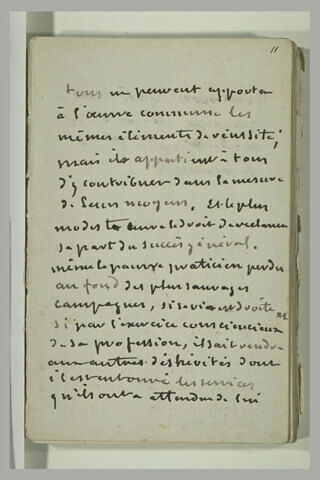 11
tous ne peuvent apporter
à l'œuvre commune les
mêmes éléments de réussite;
mais il appartient à tous
d'y contribuer dans la mesure
de leurs moyens, et le plus
modeste a le droit de réclamer
sa part du succès général.
même le pauvre praticien perdu
au fond des plus sauvages
campagnes, si sa vie est droite et
si par l'exercice consciencieux
de sa profession, il sait rendre
aux autres déshérités dont
il est entouré les services
qu'ils ont a attendre de lui